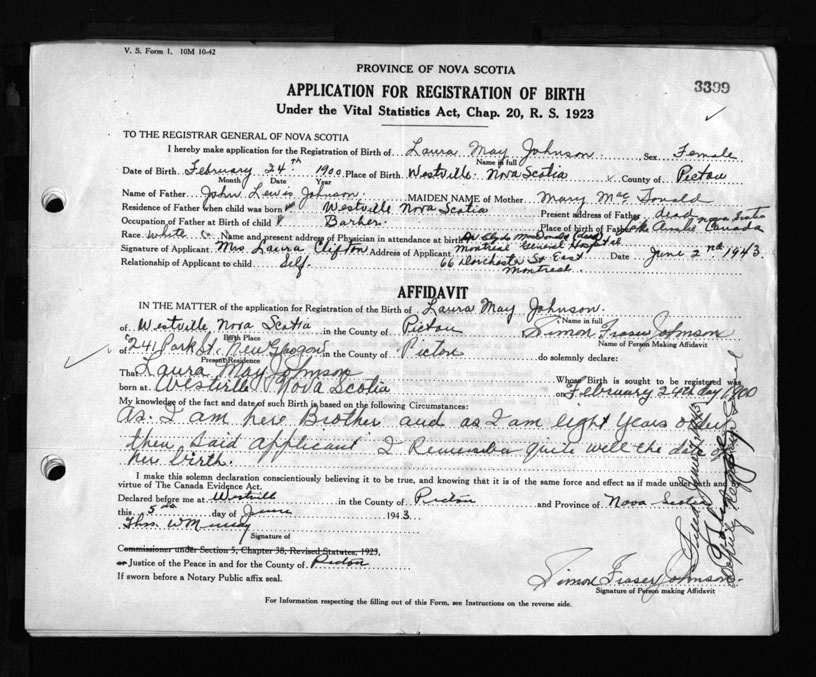 V. S. Form 1. 10M 10-42
PROVINCE OF NOVA SCOTIA
3399
APPLICATION FOR REGISTRATION OF BIRTH
Under the Vital Statistics Act, Chap. 20, R. S. 1923
TO THE REGISTRAR GENERAL OF NOVA SCOTIA
I hereby make application for the Registration of Birth of Laura May Johnson Sex Female
Name in full
Date of Birth February 24TH 1900 Place of Birth Westville Nova Scotia County of Pictou
Month Date Year
Name of Father John Lewis Johnson MAIDEN NAME of Mother Mary
Residence of Father when child was born Westville Nova Scotia Present address of Father dead
Occupation of Father at Birth of child Barber Place of birth of Father Nova Scotia Canada
Race White Name and present address of Physician in attendance at birth Dr Clyde McDonald (dead)
Signature of Applicant Mrs. Laura Clifton Address of Applicant Montreal General Hospital Date June 2nd 1943.
Relationship of Applicant to child Self. 66 Dorchester St East
Montreal.
AFFIDAVIT
IN THE MATTER of the application for Registration of the Birth of Laura May Johnson.
Name in full
of Westville, Nova Scotia in the County of Pictou Simon Fraser Johnson
Birth Place Name of Person Making Affidavit
of 241 Park St. New Glasgow in the County of Picton do solemnly declare:
Present Residence
That Laura May Johnson Whose Birth is sought to be registered was
born at Westville Nova Scotia on February 24th day 1900
My knowledge of the fact and date of such Birth is based on the following Circumstances:
As. I am here Brother and as I am eight years older
then said applicant I Remember quite well the date of
her birth.
I make this solemn declaration conscientiously believing it to be true, and knowing that it is of the same force and effect as if made under oath and by
virtue of The Canada Evidence Act.
Declared before me at Westville in the County of Picton and Province of Nova Scotia
this 5th day of June 1943
Thos. W Murray
Signature of
Commissioner under Section 5, Chapter 38, Revised Statutes, 1923,
or Justice of the Peace in and for the County of Picton
If sworn before a Notary Public affix seal.
Simon Fraser Johnson.
Signature of Person making Affidavit
For Information respecting the filling out of this Form, see Instructions on the reverse side.
Filed June
Deputy Registrar General